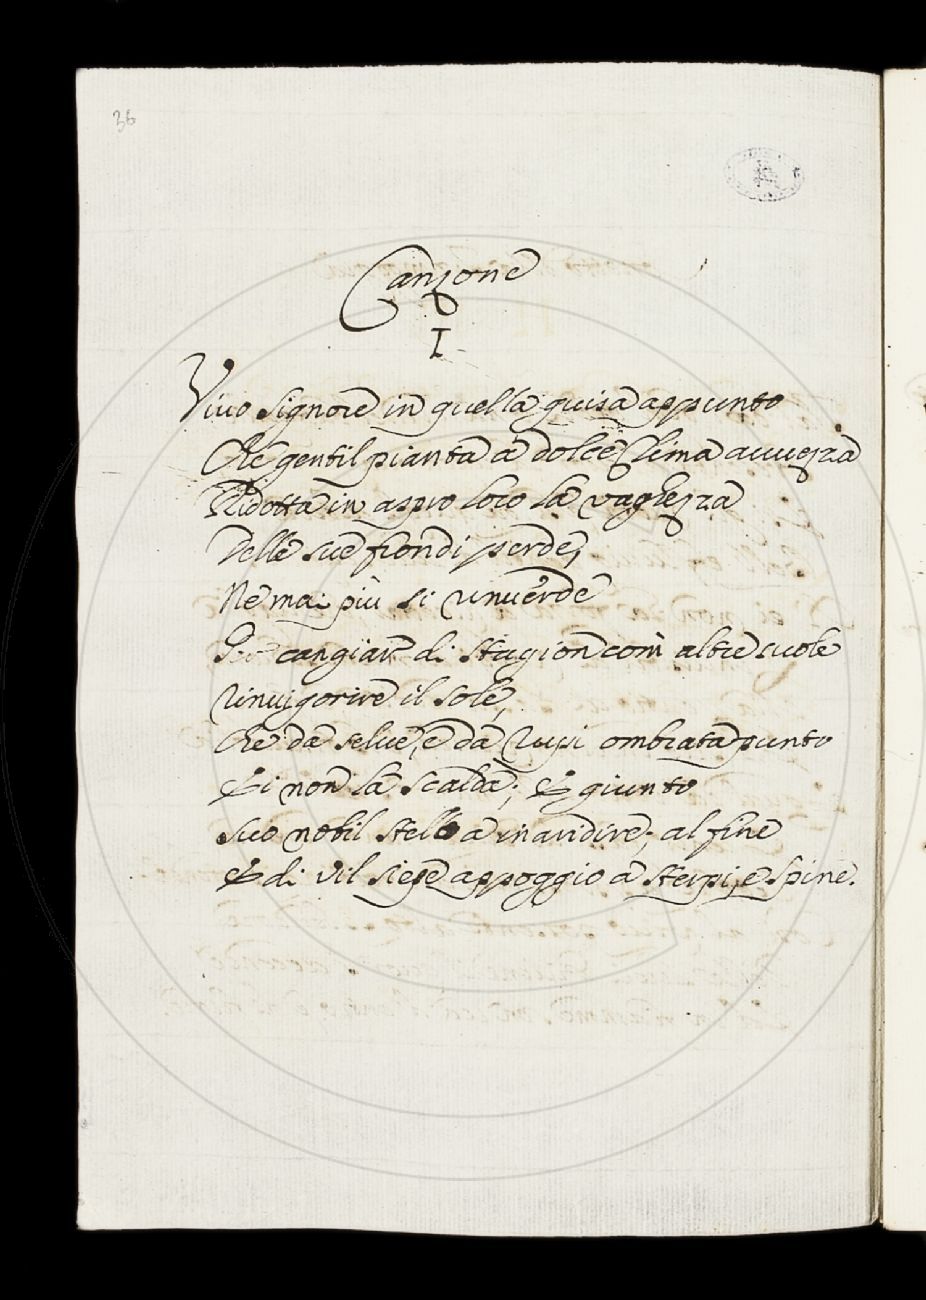 36
Canzone
I
Vivo Signore in quella guisa appunto
Che gentil pianta à dolce Clima avvezza
Ridotta in aspro loco la vaghezza
Delle sue frondi perde,
Ne mai più si rinverde
Per cangiar di Stagion com' altre suole
rinvigorire il Sole,
Che da selve, e da rupi ombrata punto
Ei non la scalda; Et è giunto
suo nobil stello à inaridire; al fine
Et di vil siepe appoggio à sterpi, e Spine.